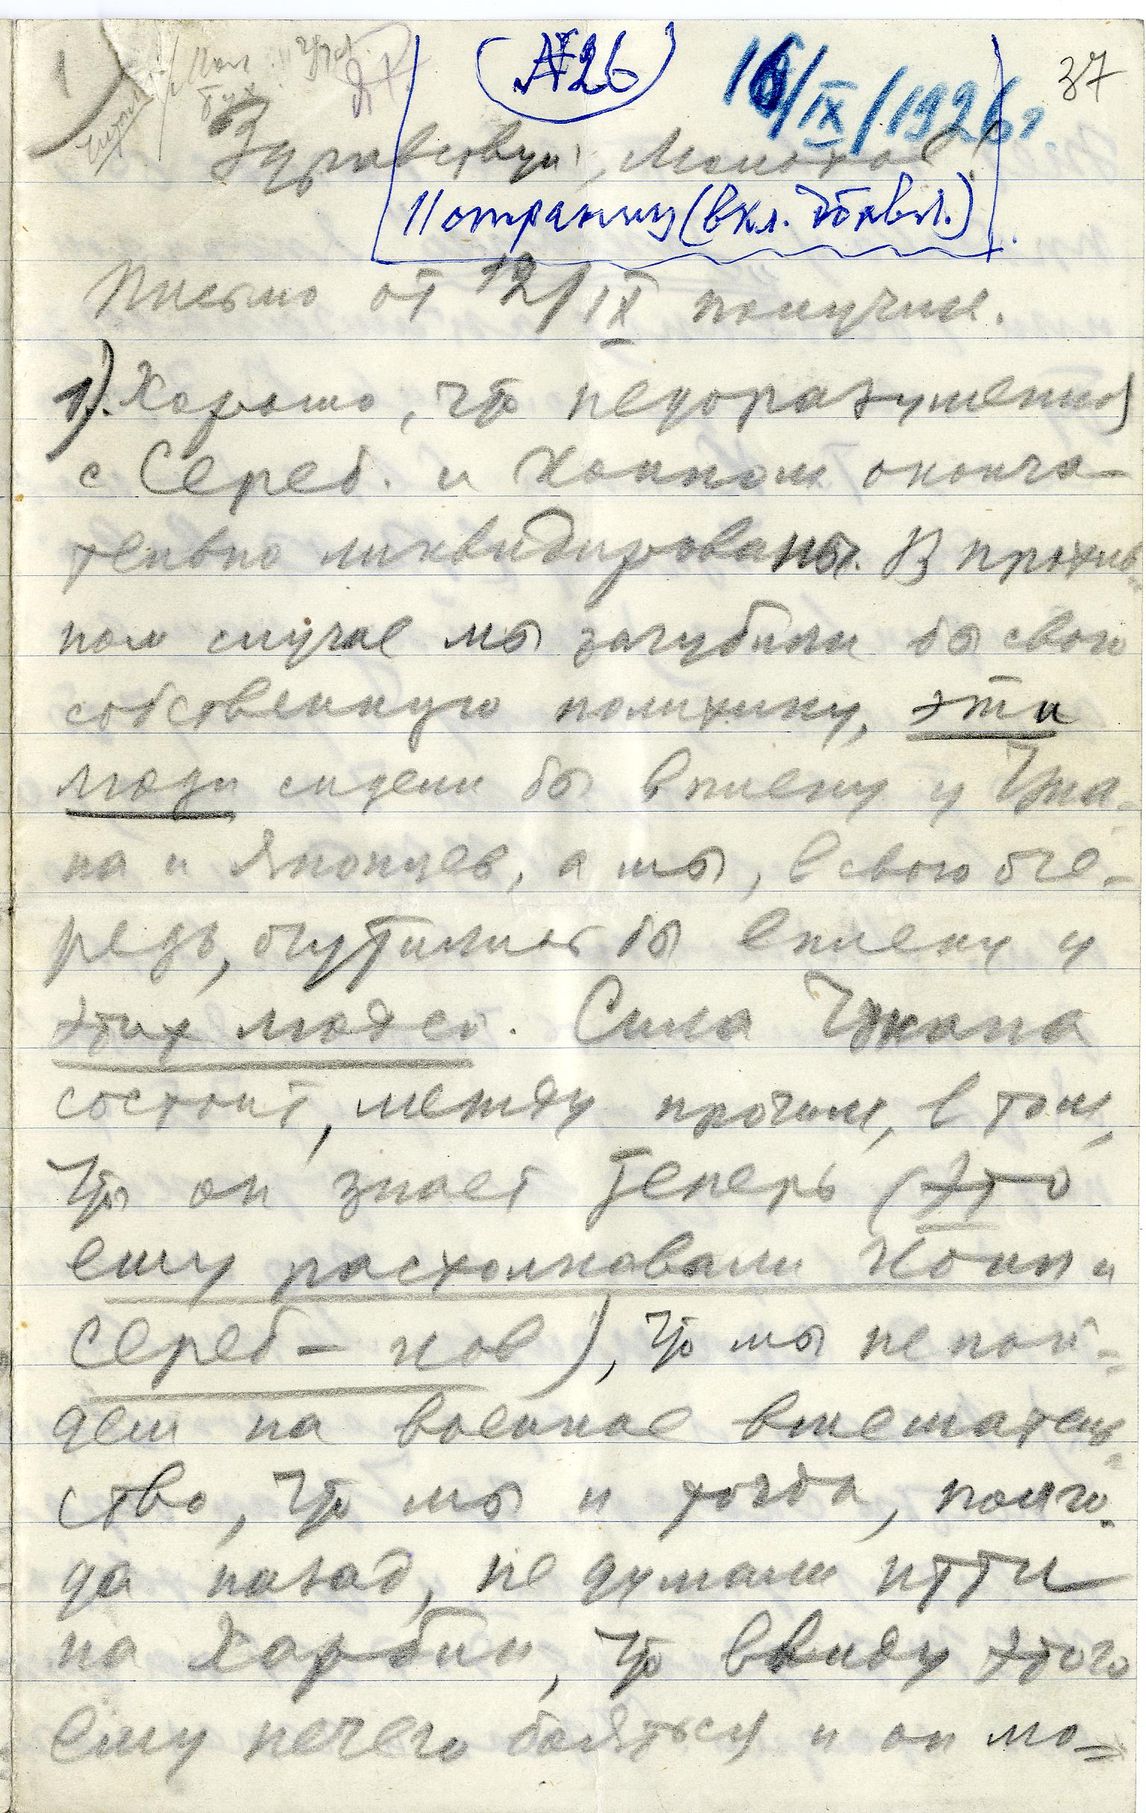 (№26) 16/IX/1926 г. 37
Здравствуй, Молотов!
11 страниц (вкл. добавл.)
Письмо от 12/IX получил.
1). Хорошо, что недоразумения
с Сереб. и Коппом оконча-
тельно ликвидированы. В против-
ном случае мы загубили бы свою
собственную политику, эти
люди сидели бы в плену у Чжа-
на и японцев, а мы, в свою оче-
редь, очутились бы в плену у
этих людей. Сила Чжана
состоит, между прочим, в том,
что он знает теперь (это
ему растолковали Копп и
Сереб-ков), что мы не пой-
дем на военное вмешатель-
ство, что мы и тогда, полго-
да назад, не думали итти
на Харбин, что ввиду этого
ему нечего бояться и он мо-